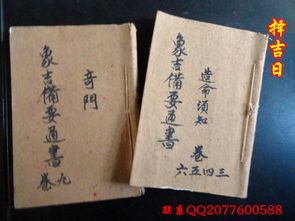 擇吉日
造命須知
象吉備要通書
卷三四五六
奇門
象吉備要通書
卷九
联系QQ2077600588